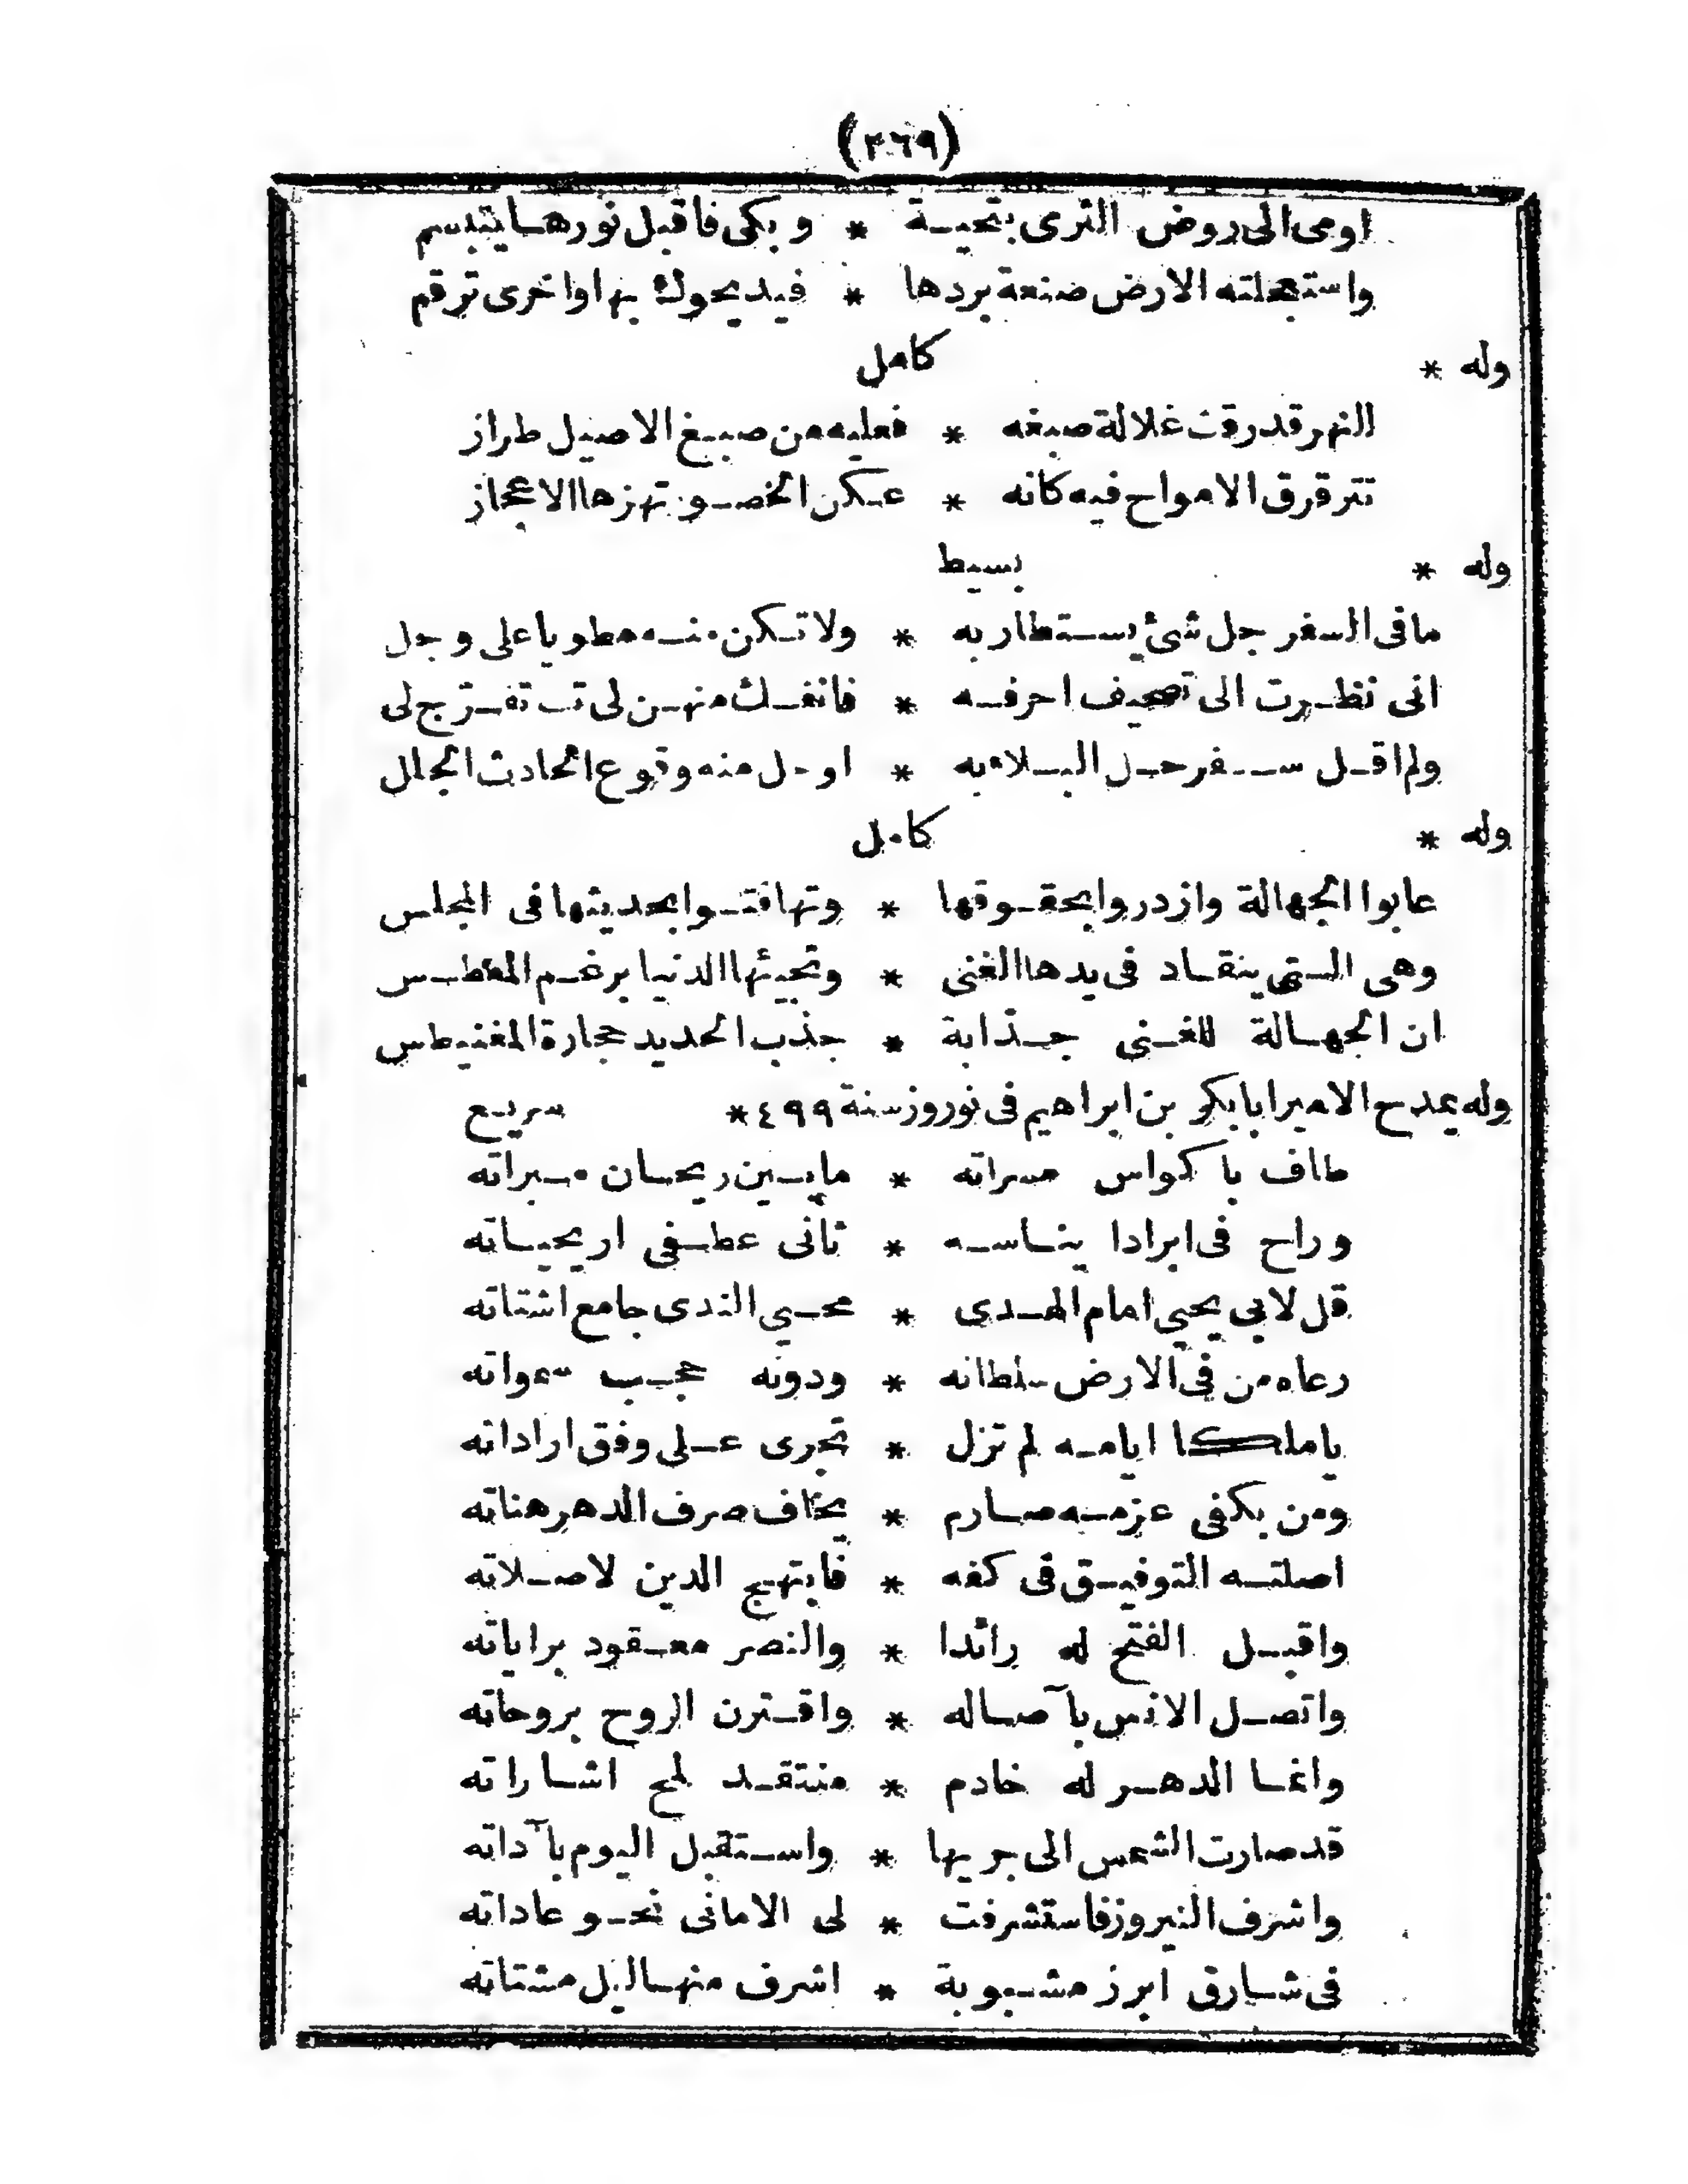 (٢٦٩)
اومى الى روض الثرى بتحيــة * وبكى فاقبل نورهــا يتبسم
واستعملته الارض صنعة بردها * فيد يحوك بها واخرى ترقم
وله * كامل
النهر قد رقت غلالة صبغه * فعليه من صبــغ الاصيل طراز
تترقرق الامواج فيه كانه * عــكن الخصــور تهزها الاعجاز
وله * بسيط
مافى السفر جل شئ يســتطار به * ولا تــكن منــه مطويا على وجل
انى نظــرت الى تصحيف احرفــه * فانفــك منهــن لى تفــرج لى
ولم اقــل ســفر حــل البــلاء به * او حل منه وقوع الحادث الجلل
وله * كامل
عابوا الجهالة وازدروا بحقــوقها * وتهافتــوا بحديثها فى المجلس
وهى الــتى ينقــاد فى يدها الغنى * وتجيئها الدنيا برغــم المعطــس
ان الجهــالة للغــنى جــذابة * جذب الحديد حجارة المغنيطس
وله يمدح الامير ابا بكر بن ابراهيم فى نوروز سنة ٤٩٩ * سريــع
طاف باكواس مسراته * مابــين ريحــان مــبراته
وراح فى ابرادا يناســه * ثانى عطــفى اريحيــاته
قل لابي يحيي امام الهــدى * محــيي الندى جامع اشتاته
رعاه من فى الارض سلطانه * ودونه حجــب سمواته
ياملكا ايامــه لم تزل * تجرى عــلى وفق اراداته
ومن بكفى عزمــه صــارم * يخاف صرف الدهر هناته
اصلتــه التوفيــق فى كفه * فابتهــج الدين لاصــلاته
واقبــل الفتح له رائدا * والنصر معــقود براياته
واتصــل الانس بآصــاله * واقــترن الروح بروحاته
وانمــا الدهــر له خادم * منتقــد لمح اشــاراته
قد صارت الشمس الى جريها * واســتقبل اليوم بآداته
واشرف النيروز فاستشرفت * لى الامانى نحــو عاداته
فى شــارق ابرز مشــبوبة * اشرف منهــا ليل مشتاته